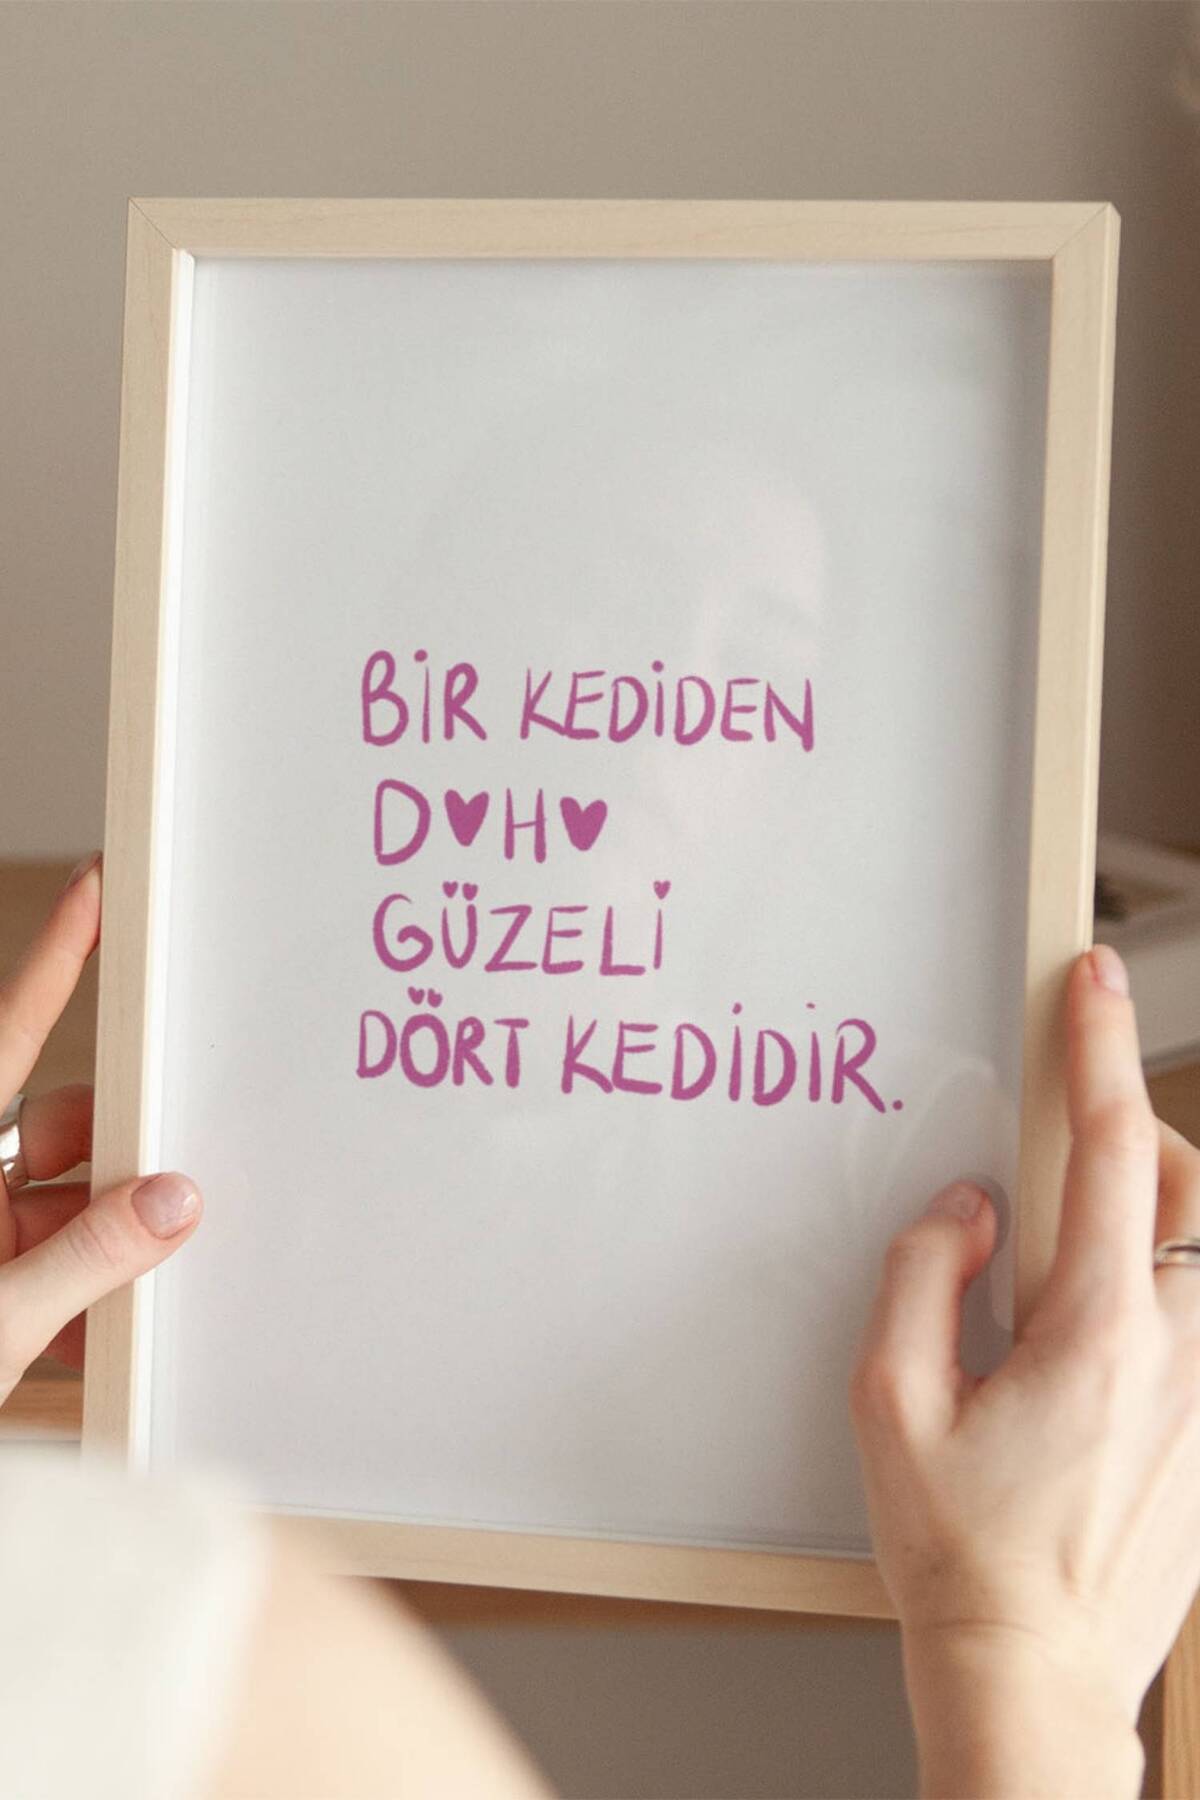 BİR KEDİDEN
D♥H♥
GÜZELİ
DÖRT KEDİDİR.